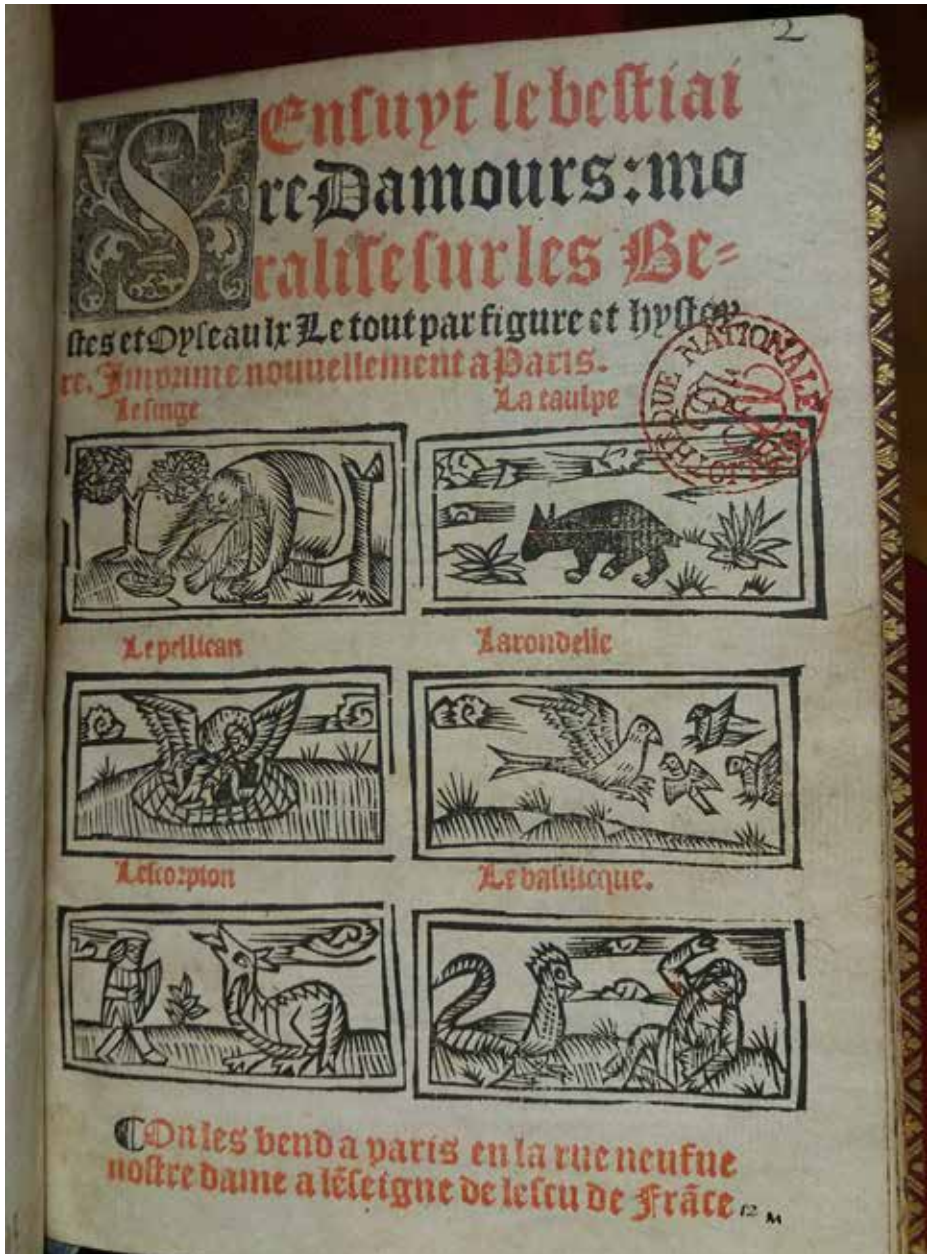 2
SEnsuyt le bestiai
re Damours: mo
ralise sur les Be=
stes et Oyseaulx Le tout par figure et hystoy
re. Imprime nouuellement a Paris.
Le singe La taulpe
NATIONALE
Le pellican Larondelle
Lescorpion Le basilicque.
COn les vend a paris en la rue neufue
nostre dame a lẽseigne de lescu de Frãce